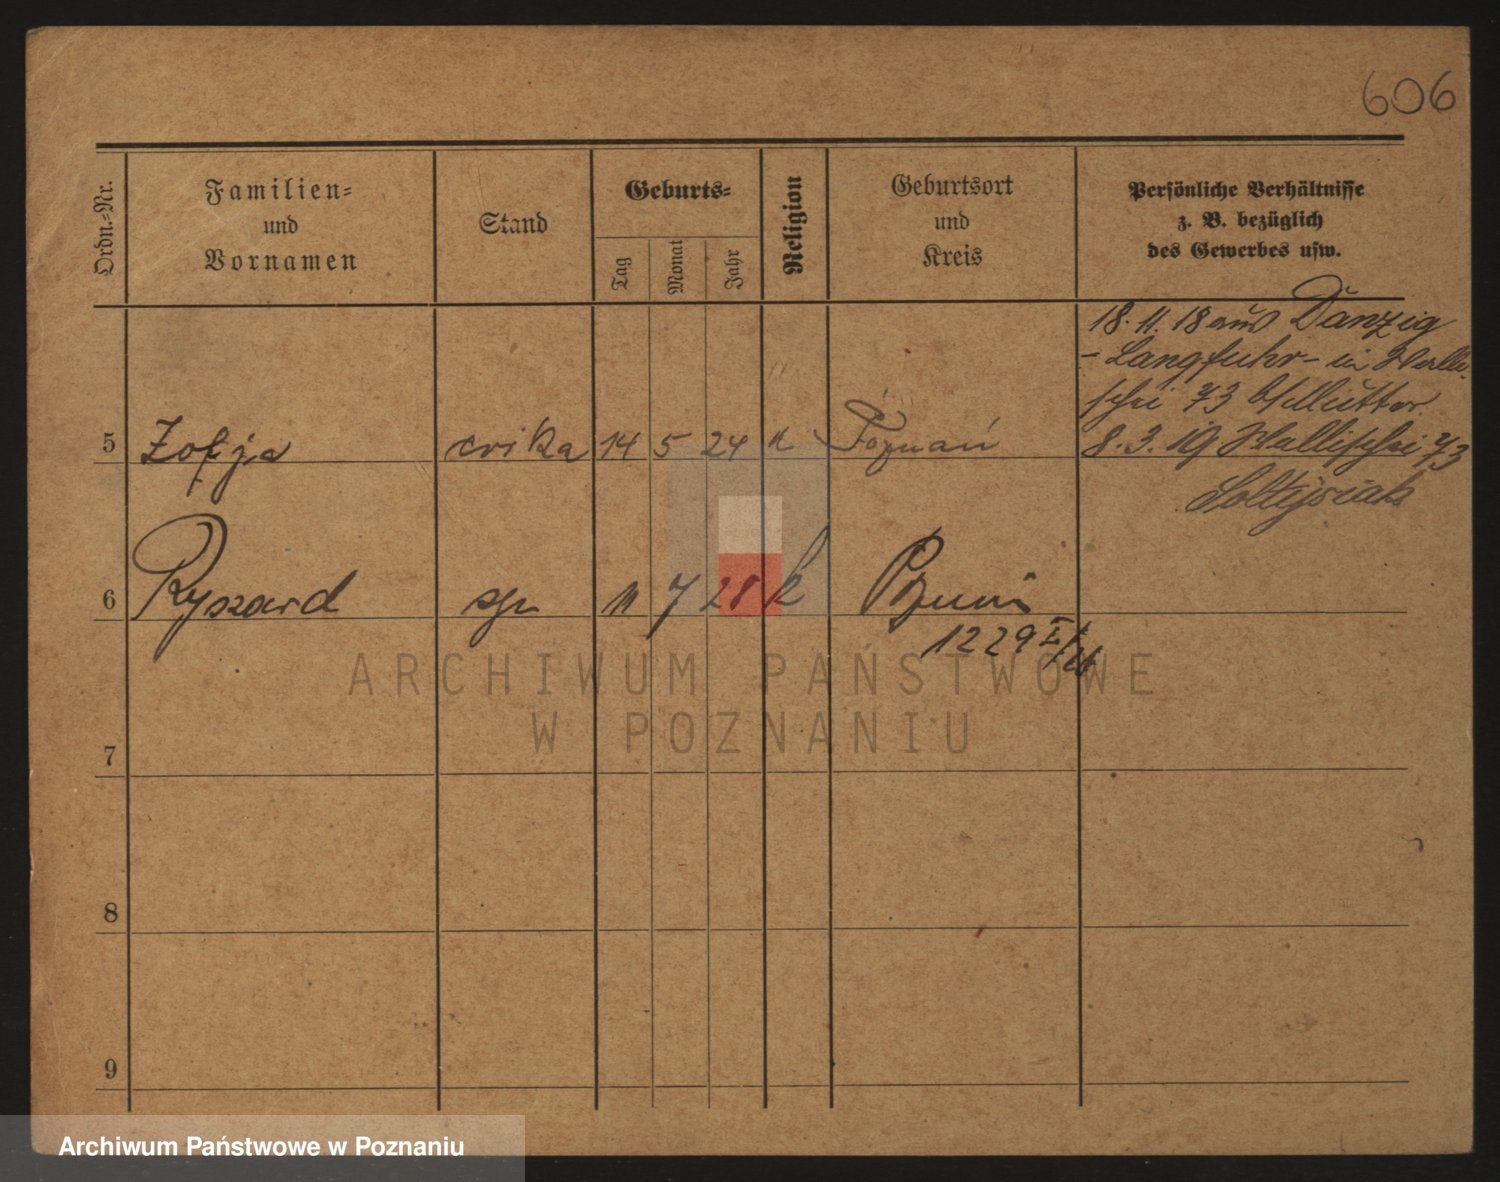 606
Ordn.=Nr.
Familien=
und
Vornamen
Stand
Geburts=
Tag
Monat
Jahr
Religion
Geburtsort
und
Kreis
Persönliche Verhältnisse
z. B. bezüglich
des Gewerbes usw.
18. 11. 18 aus Danzig
- Langfuhr - in Walli-
schei 73 b/Mutter.
8. 3. 19 Wallischei 73
5 Zofija córka 14 5 24 k Poznań
6 Ryszard syn 11 7 28 k
1229
7
8
9
ARCHIWUM PAŃSTWOWE
W POZNANIU
Archiwum Państwowe w Poznaniu